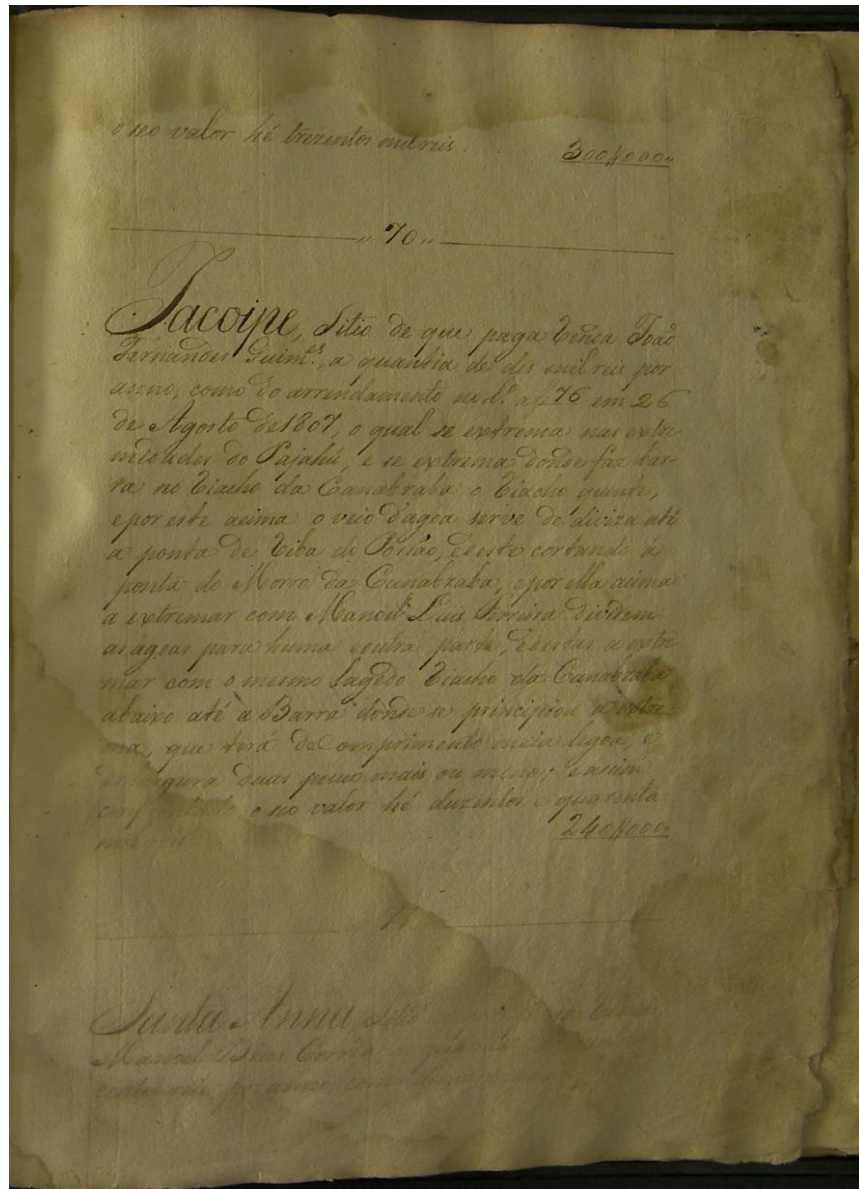 o seo valor hé trezentos mil reis 300$000
" 70 "
Jacoipe, Sitio de que paga renda João
Fernandes Guim.es, a quantia de des mil reis por
anno, como do arrendamento no L.º a f 76 em 26
de Agosto de 1807, o qual se extrema nas extre
midades do Pajahú, e se extrema donde faz bar-
ra no Riacho da Canabraba o Riacho quente,
e por este acima o veio d'agoa serve de diviza até
a ponta de Riba do Portão, e deste cortando á
ponta do Morro da Canabraba, e por ella acima
a extremar com Manoel Luis Ferreira dividem
as agoas para huma e outra parte, e destas a extre
mar com o mesmo lagedo Riacho da Canabraba
abaixo até a Barra donde se principiou a extre
ma, que terá de comprimento meia legoa, e
de largura duas pouco mais ou menos; e assim
confrontado o seo valor hé duzentos e quarenta
mil reis 240$000
Santa Anna, Sitio
Manoel Dias Correa, a quantia
reis por anno, como do